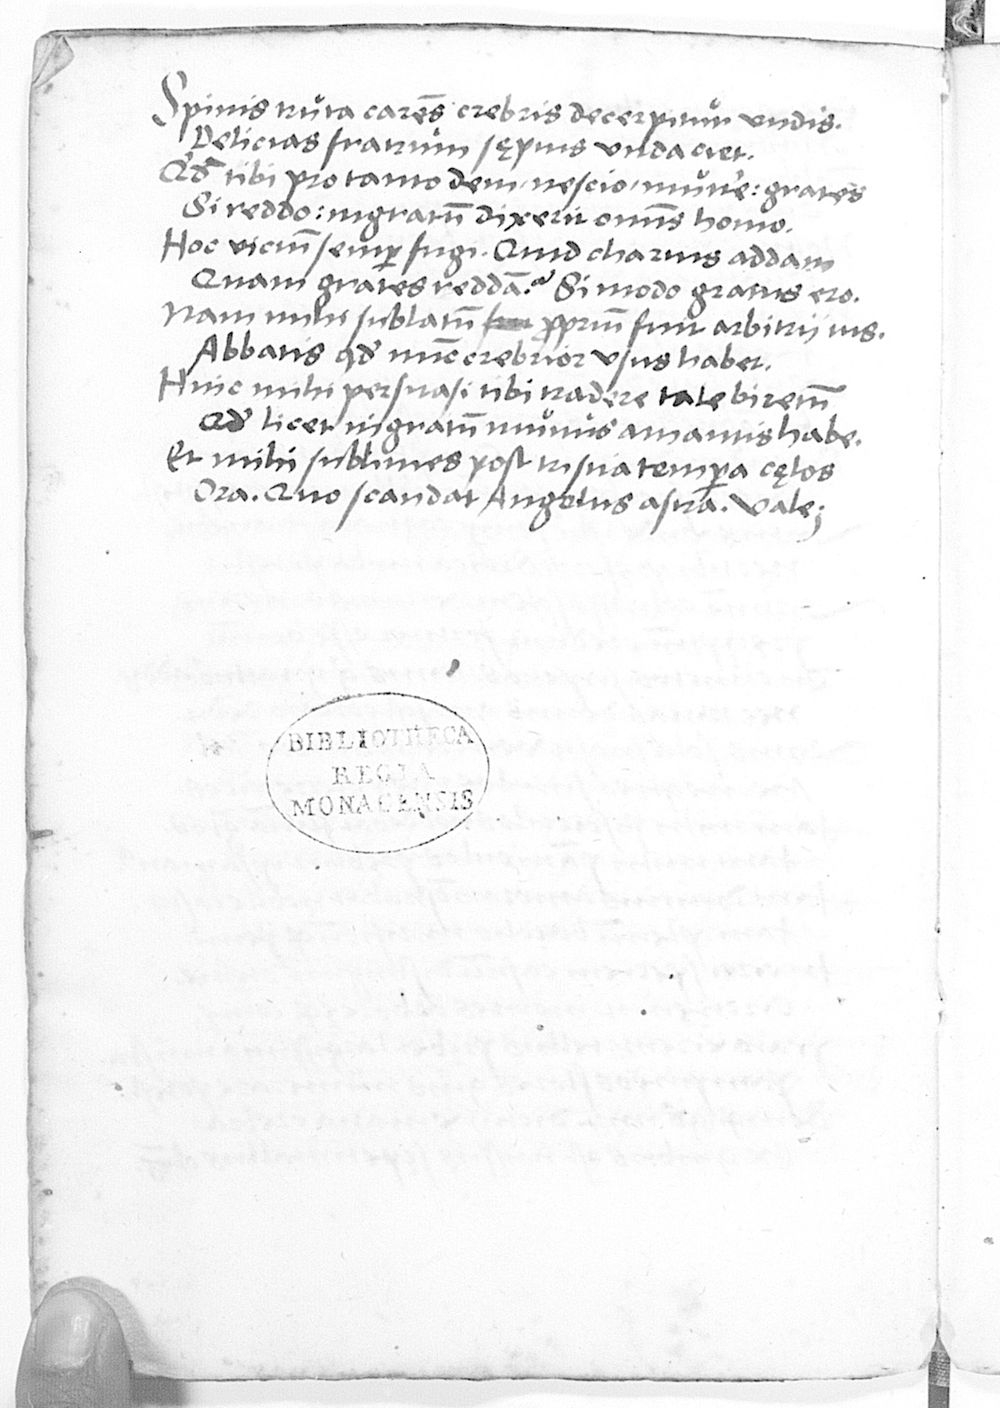 Spinis truta carēs crebris decerpitur undis.
Delicias fratrum sępius unda ciet.
Qđ tibi pro tanto dem, nescio, munere: grates
Si reddo: ingratū dixerit omīs homo.
Hoc viciū semp fugi. Quid charius addam
Quam grates reddā? Si modo gratus ero.
Nam mihi sublatū ꝓpriū fuit arbitrij ius.
Abbatis qđ nūc crebrior usus habet.
Hinc mihi persuasi tibi tradere tale biretū
Qđ licet ingratū munus amantis habe.
Et mihi sublimes post tristia tempa cęlos
Ora. Quo scandat Angelus astra. Vale;
BIBLIOTHECA
REGIA
MONACENSIS